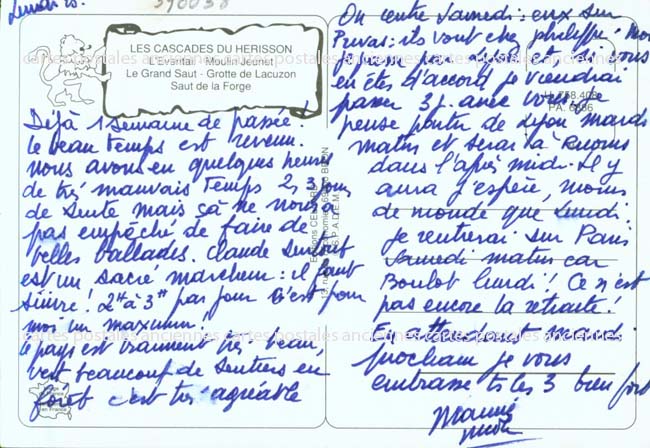 Lundi 28.
390038
LES CASCADES DU HERISSON
L'Eventail - Moulin Jeunet
Le Grand Saut - Grotte de Lacuzon
Saut de la Forge
Déjà 1 semaine de passée !
le beau temps est revenu.
nous avons eu quelques heures
de très mauvais temps 2, 3 jours
de suite mais çà ne nous a
pas empêché de faire de
belles ballades. Claude surtout
est un sacré marcheur : il faut
suivre ! 2H à 3H par jour c'est pour
moi un maximum !
le pays est vraiment très beau,
vert beaucoup de sentiers en
forêt c'est très agréable
en France
Editions
cartes postales anciennes cartes postales anciennes cartes postales anciennes
On rentre samedi : eux sur
Privas : ils vont chez philippe : moi
et si vous
en êtes d'accord je viendrai
passer 3 j. avec vous. Je
pense partir de Lyon mardi
matin et serai à Ruoms
dans l'après midi. Il y
aura j'espère, moins
de monde que lundi.
je rentrerai sur Paris
samedi matin car
Boulot lundi ! Ce n'est
pas encore la retraite !
En attendant mardi
prochain je vous
embrasse ts les 3 bien fort
cartes postales anciennes cartes postales anciennes cartes postales anciennes